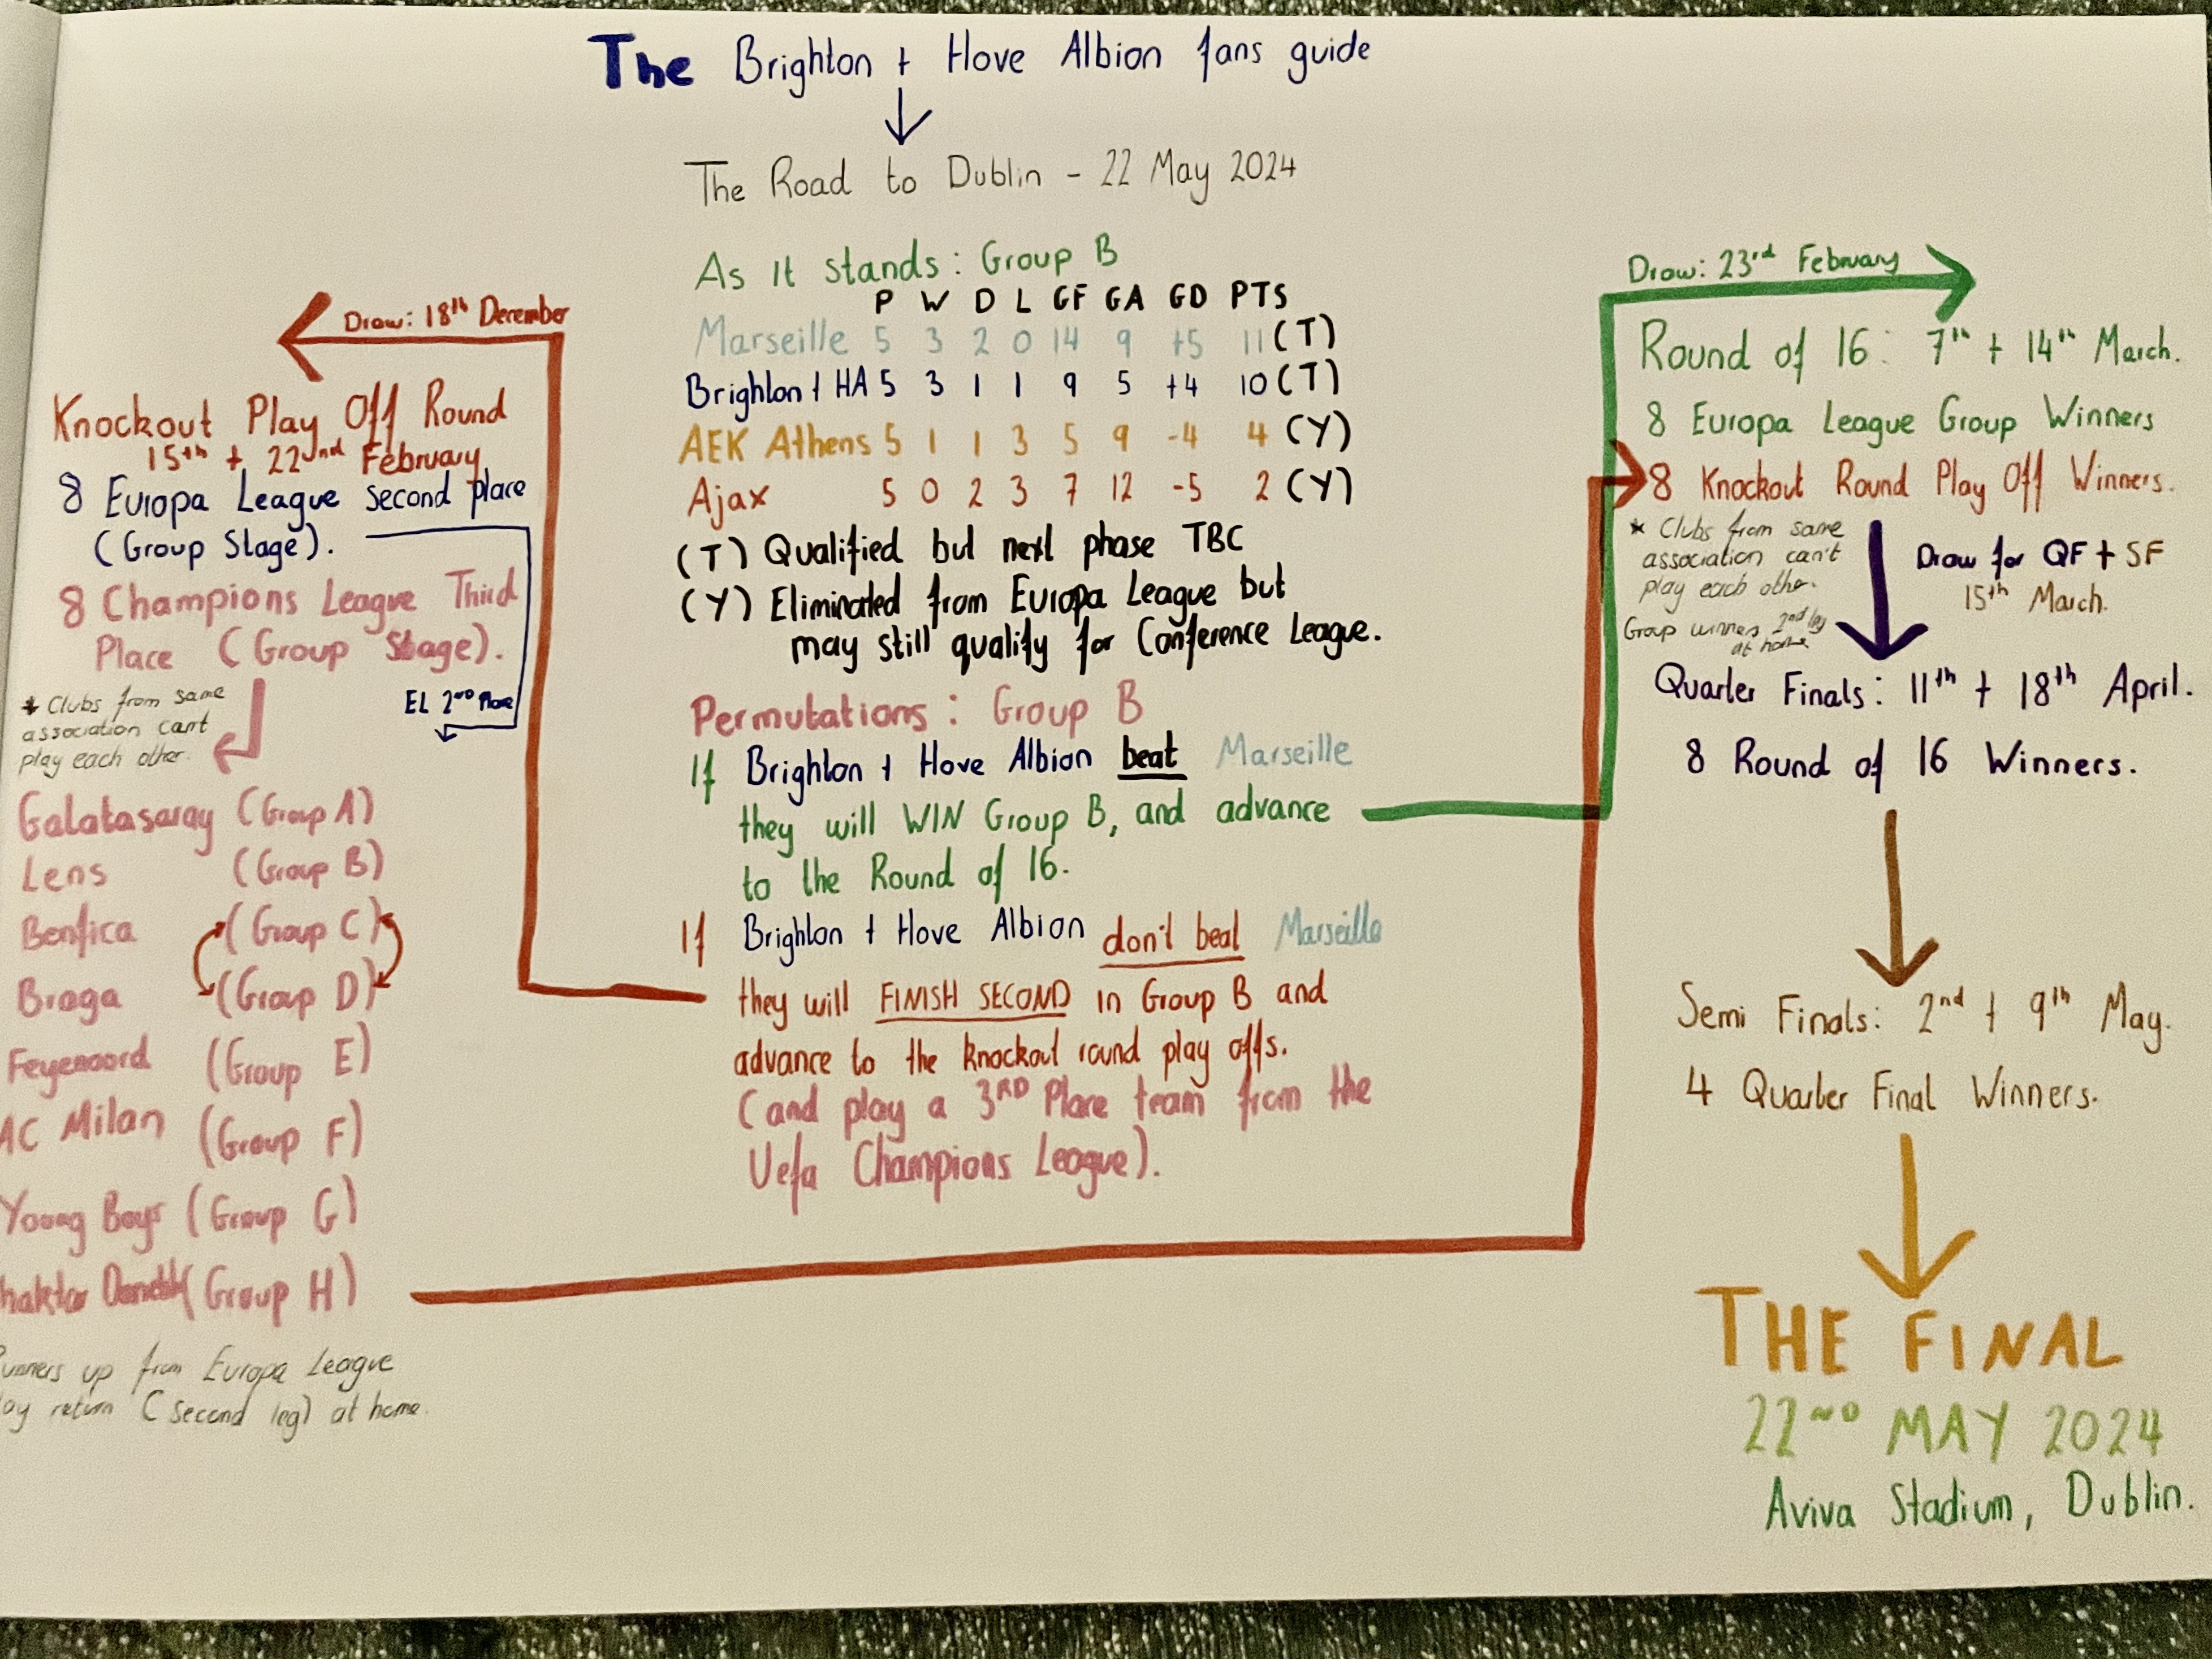 The Brighton + Hove Albion fans guide
The Road to Dublin - 22 May 2024
As It stands: Group B
P W D L GF GA GD PTS
Marseille 5 3 2 0 14 9 +5 11 (T)
Brighton + HA 5 3 1 1 9 5 +4 10 (T)
AEK Athens 5 1 1 3 5 9 -4 4 (Y)
Ajax 5 0 2 3 7 12 -5 2 (Y)
(T) Qualified but next phase TBC
(Y) Eliminated from Europa League but
may still qualify for Conference League.
Permutations: Group B
If Brighton + Hove Albion beat Marseille
they will WIN Group B, and advance
to the Round of 16.
If Brighton + Hove Albion don't beat Marseille
they will FINISH SECOND in Group B and
advance to the knockout round play offs.
(and play a 3RD Place team from the
Uefa Champions League).
Draw: 18th December
Knockout Play Off Round
15th + 22nd February
8 Europa League second place
(Group Stage).
8 Champions League Third
Place (Group Stage).
* Clubs from same
association cant
play each other.
EL 2ND Place
Galatasaray (Group A)
Lens (Group B)
Benfica (Group C)
Braga (Group D)
Feyenoord (Group E)
AC Milan (Group F)
Young Boys (Group G)
(Group H)
up from Europa League
return (second leg) at home.
Draw: 23rd February
Round of 16: 7th + 14th March.
8 Europa League Group Winners
8 Knockout Round Play Off Winners.
* Clubs from same
association can't
play each other.
Group winners 2nd leg
at home
Draw for QF + SF
15th March.
Quarter Finals: 11th + 18th April.
8 Round of 16 Winners.
Semi Finals: 2nd + 9th May.
4 Quarter Final Winners.
THE FINAL
22ND MAY 2024
Aviva Stadium, Dublin.